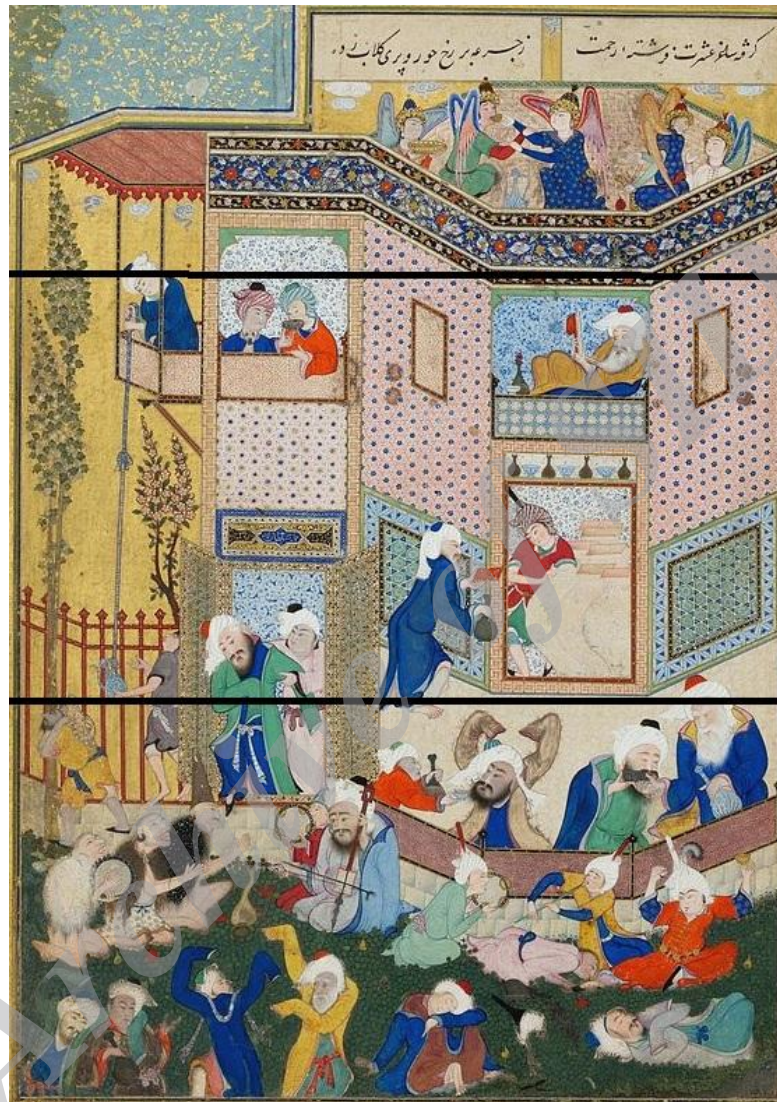 گرفته ساغر عشرت فرشته رحمت
ز جرعه بر رخ حور و پری گلاب زده